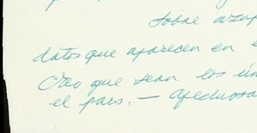 Sobre azu
datos que aparecen en e
Creo que sean los ún
el país. — Afectuosa